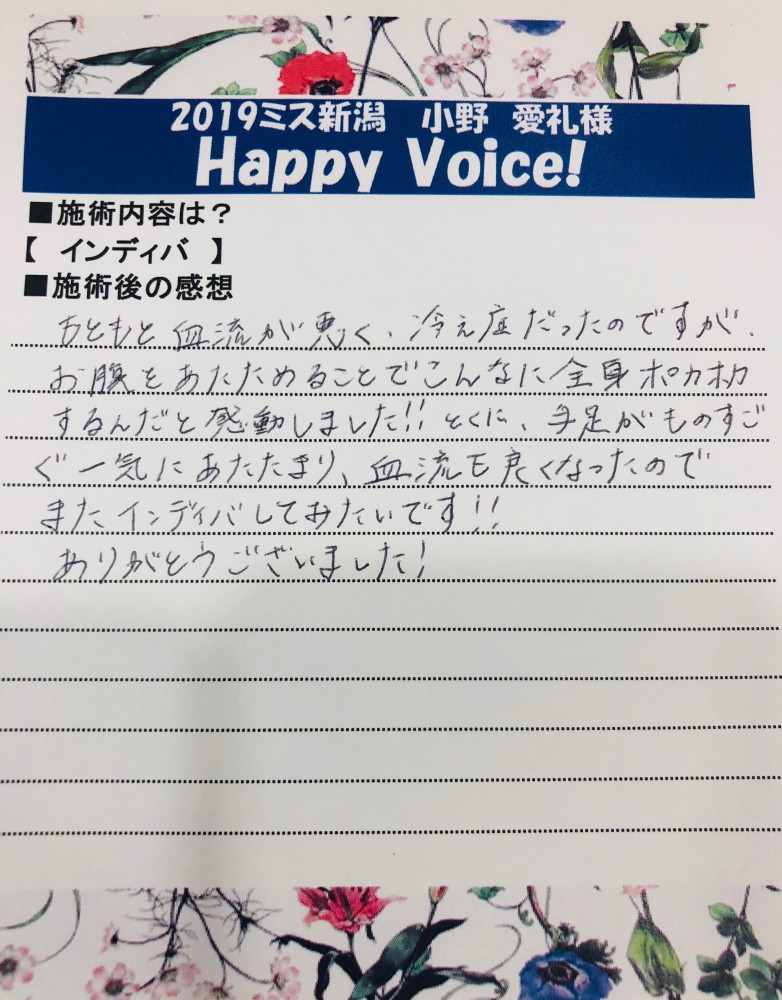 2019ミス新潟　小野　愛礼様
Happy Voice!
■施術内容は？
【　インディバ　】
■施術後の感想
もともと血流が悪く、冷え症だったのですが、
お腹をあたためることでこんなに全身ポカポカ
するんだと感動しました!! とくに、手足がものすご
ぐ一気にあたたまり、血流も良くなったので
またインディバしてみたいです!!
ありがとうございました!